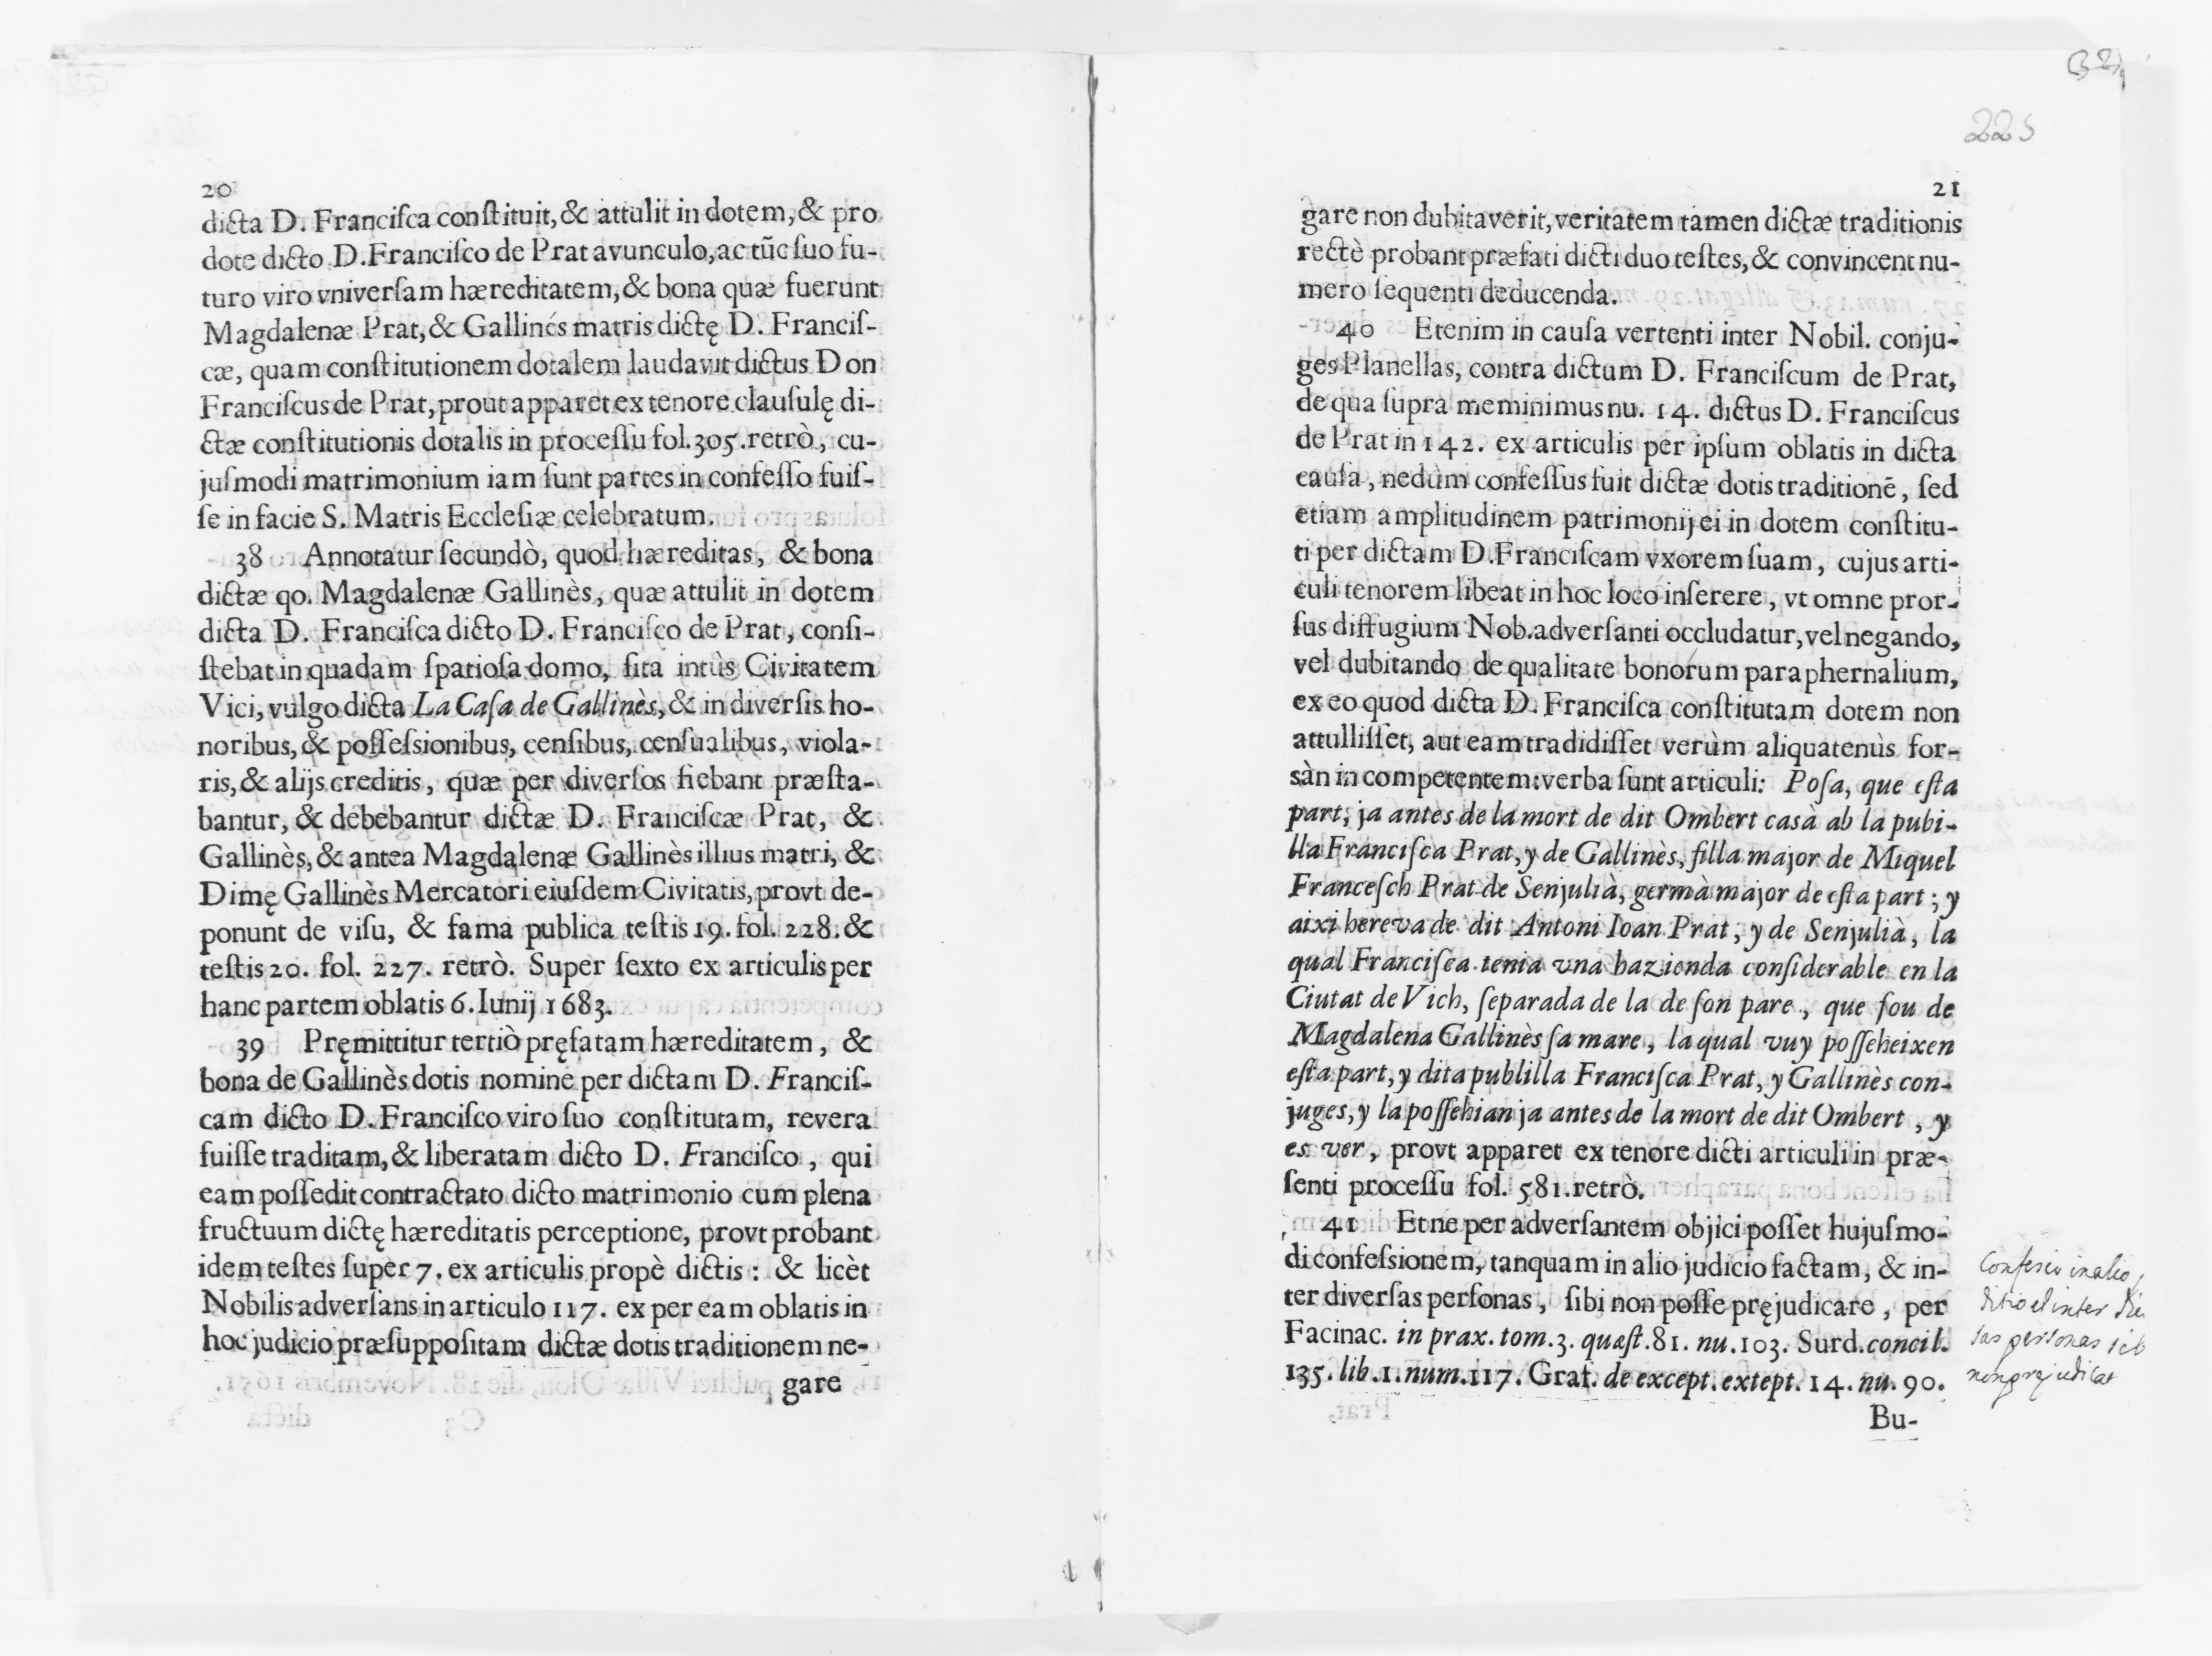 20
dicta D. Franciſca conſtituit, & attulit in dotem, & pro
dote dicto D. Franciſco de Prat avunculo, ac tũc ſuo fu-
turo viro vniverſam hæreditatem, & bona quæ fuerunt
Magdalenæ Prat, & Gallinés matris dictę D. Franciſ-
cæ, quam conſtitutionem dotalem laudavit dictus Don
Franciſcus de Prat, prout apparet ex tenore clauſulę di-
ctæ conſtitutionis dotalis in proceſſu fol. 305. retrò, cu-
juſmodi matrimonium iam ſunt partes in confeſſo fuiſ-
ſe in facie S. Matris Eccleſiæ celebratum.
38 Annotatur ſecundò, quod hæreditas, & bona
dictæ qo. Magdalenæ Gallinès, quæ attulit in dotem
dicta D. Franciſca dicto D. Franciſco de Prat, conſi-
ſtebat in quadam ſpatioſa domo, ſita intùs Civitatem
Vici, vulgo dicta La Caſa de Gallinès, & in diverſis ho-
noribus, & poſſeſsionibus, cenſibus, cenſualibus, viola-
ris, & alijs creditis, quæ per diverſos fiebant præſta-
bantur, & debebantur dictæ D. Franciſcæ Prat, &
Gallinès, & antea Magdalenæ Gallinès illius matri, &
Dimę Gallinès Mercatori eiuſdem Civitatis, provt de-
ponunt de viſu, & fama publica teſtis 19. fol. 228. &
teſtis 20. fol. 227. retrò. Super ſexto ex articulis per
hanc partem oblatis 6. Iunij 1683.
39 Pręmittitur tertiò pręfatam hæreditatem, &
bona de Gallinès dotis nomine per dictam D. Franciſ-
cam dicto D. Franciſco viro ſuo conſtitutam, revera
fuiſſe traditam, & liberatam dicto D. Franciſco, qui
eam poſſedit contractato dicto matrimonio cum plena
fructuum dictę hæreditatis perceptione, provt probant
idem teſtes ſuper 7. ex articulis propè dictis: & licèt
Nobilis adverſans in articulo 117. ex per eam oblatis in
hoc judicio præſuppoſitam dictæ dotis traditionem ne-
gare
225
21
gare non dubitaverit, veritatem tamen dictæ traditionis
rectè probant præfati dicti duo teſtes, & convincent nu-
mero ſequenti deducenda.
40 Etenim in cauſa vertenti inter Nobil. conju-
ges Planellas, contra dictum D. Franciſcum de Prat,
de qua ſupra meminimus nu. 14. dictus D. Franciſcus
de Prat in 142. ex articulis per ipſum oblatis in dicta
cauſa, nedùm confeſſus fuit dictæ dotis traditionẽ, ſed
etiam amplitudinem patrimonij ei in dotem conſtitu-
ti per dictam D. Franciſcam vxorem ſuam, cujus arti-
culi tenorem libeat in hoc loco inſerere, vt omne pror-
ſus diffugium Nob. adverſanti occludatur, vel negando,
vel dubitando de qualitate bonorum paraphernalium,
ex eo quod dicta D. Franciſca conſtitutam dotem non
attulliſſet, aut eam tradidiſſet verùm aliquatenùs for-
sàn in competentem: verba ſunt articuli: Poſa, que eſta
part, ja antes de la mort de dit Ombert casà ab la pubi-
lla Franciſca Prat, y de Gallinès, filla major de Miquel
Franceſch Prat de Senjulià, germà major de eſta part; y
aixi hereva de dit Antoni Ioan Prat, y de Senjulià, la
qual Franciſca tenia vna hazienda conſiderable en la
Ciutat de Vich, ſeparada de la de ſon pare, que fou de
Magdalena Gallinès ſa mare, la qual vuy poſſeheixen
eſta part, y dita publilla Franciſca Prat, y Gallinès con-
juges, y la poſſehian ja antes de la mort de dit Ombert, y
es ver, provt apparet ex tenore dicti articuli in præ-
ſenti proceſſu fol. 581. retrò.
41 Et ne per adverſantem objici poſſet hujuſmo-
di confeſsionem, tanquam in alio judicio factam, & in-
ter diverſas perſonas, ſibi non poſſe pręjudicare, per
Facinac. in prax. tom. 3. quæſt. 81. nu. 103. Surd. concil.
135. lib. 1. num. 117. Grat. de except. extept. 14. nu. 90.
Bu-
Confesio in alio
inter
personas
non prejudicat